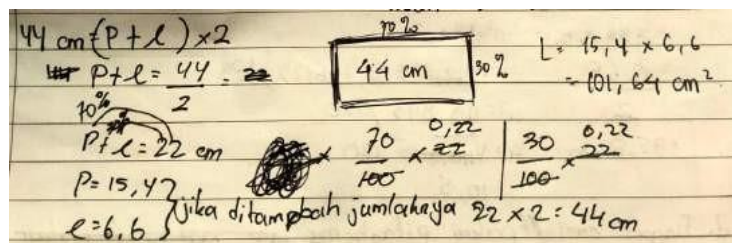 44 cm = (P + l) × 2
P + l = 44/2 = 22
70%
P + l = 22 cm
P = 15,4
l = 6,6
jika ditambah jumlahnya 22 × 2 = 44 cm
70%
44 cm
30%
× 70/100 × 22 0,22
30/100 × 22 0,22
L = 15,4 × 6,6
= 101,64 cm²